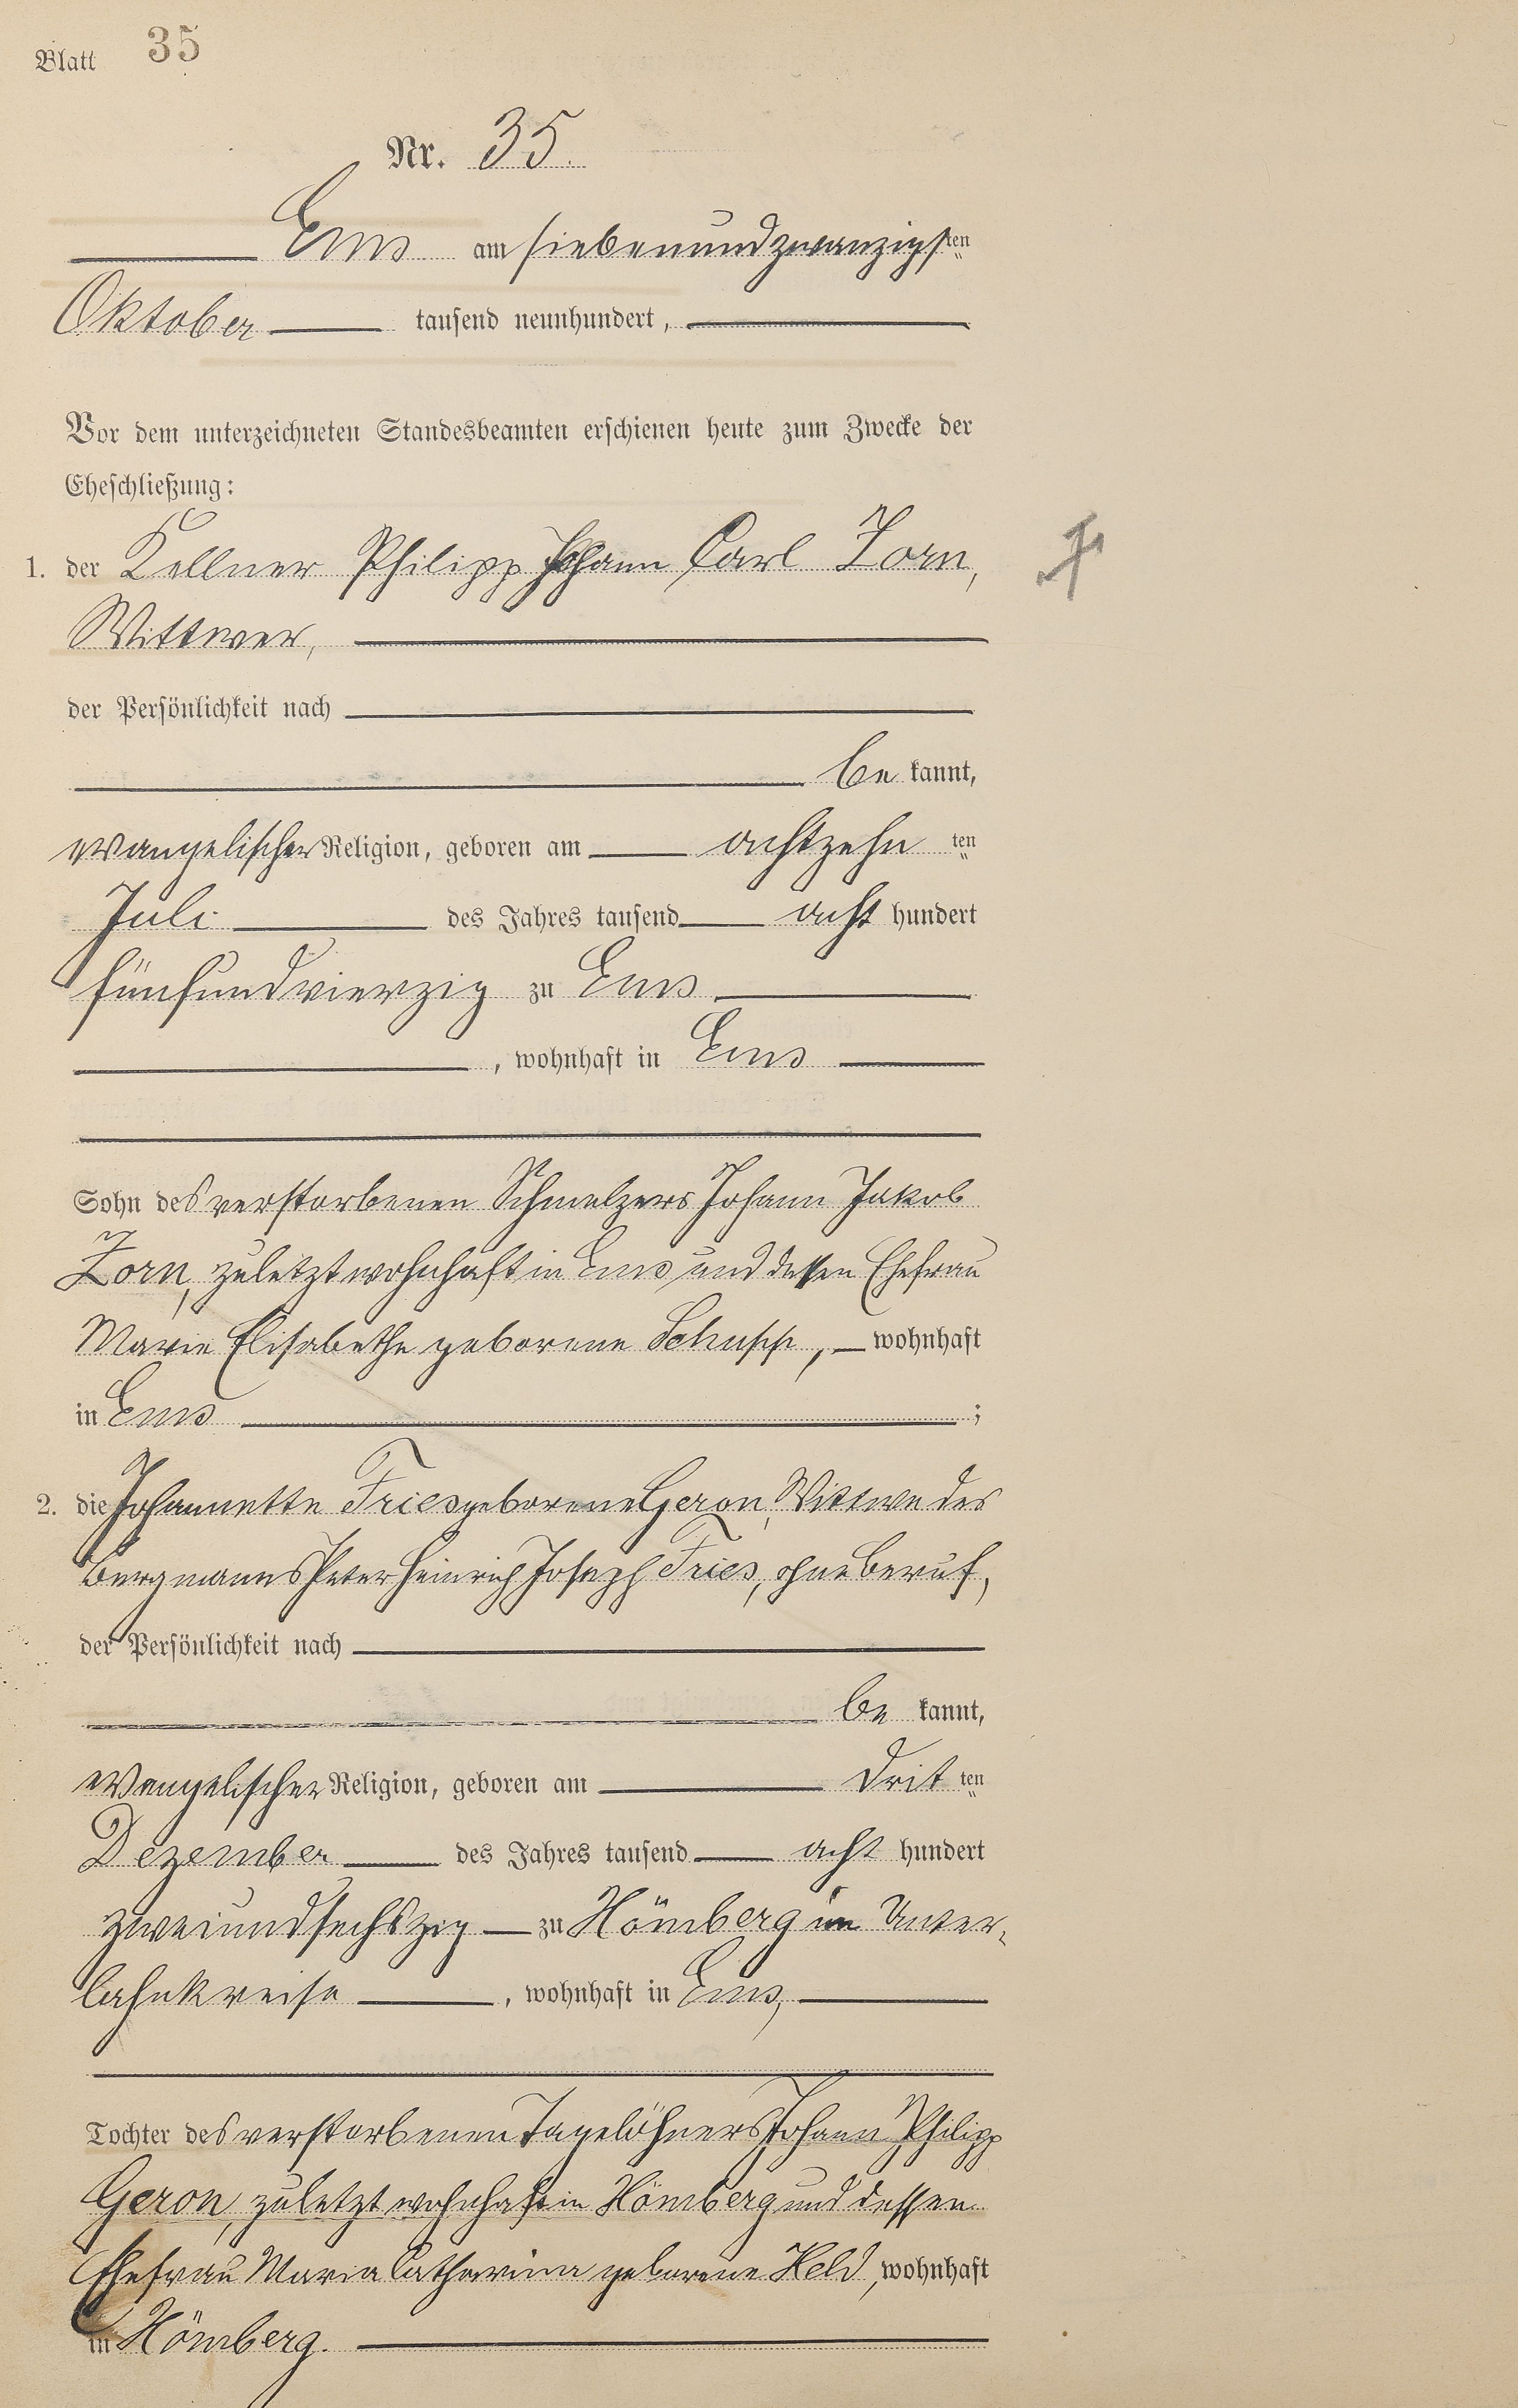 Blatt 35
Nr. 35.
Ems am siebenundzwanzigsten
Oktober tausend neunhundert,
Vor dem unterzeichneten Standesbeamten erschienen heute zum Zwecke der
Eheschließung:
1. der Kellner Philipp Johann Carl Zorn,
Wittwer,
der Persönlichkeit nach
be kannt,
evangelischer Religion, geboren am achtzehn ten
Juli des Jahres tausend acht hundert
fünfundvierzig zu Ems
, wohnhaft in Ems
Sohn des verstorbenen Schmelzers Johann Jakob
Zorn, zuletzt wohnhaft in Ems und dessen Ehefrau
Marie Elisabethe geborene Schupp, wohnhaft
in Ems ;
2. die Johannette Fries geborene Geron, Wittwe des
Bergmanns Peter Heinrich Joseph Fries, ohne Beruf,
der Persönlichkeit nach
be kannt,
evangelischer Religion, geboren am drit ten
Dezember des Jahres tausend acht hundert
zweiundsechszig zu Hömberg im Unter-
lahnkreise , wohnhaft in Ems,
Tochter des verstorbenen Tagelöhners Johann Philipp
Geron, zuletzt wohnhaft in Hömberg und dessen
Ehefrau Maria Catharina geborene Held, wohnhaft
in Hömberg.